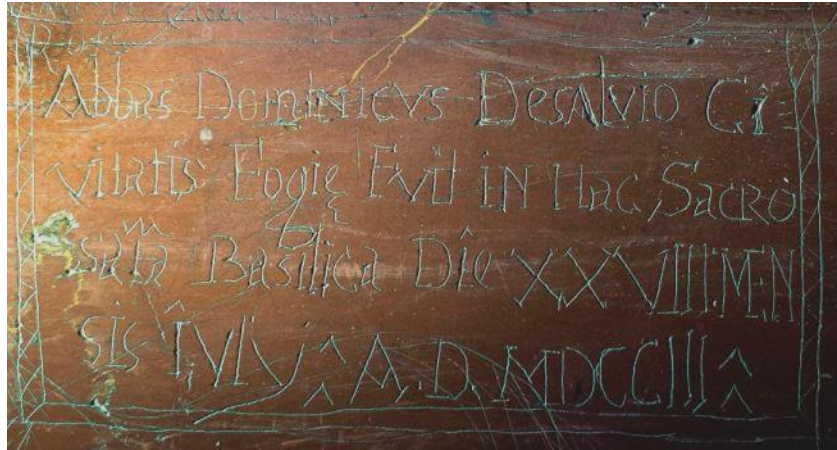 Abbas Dominicus Desalvio Ci
vitatis Fogię Fuit in Hac Sacro
sāta Basilica Die XXVIII MEN
sis Iulij A. D. MDCCIII